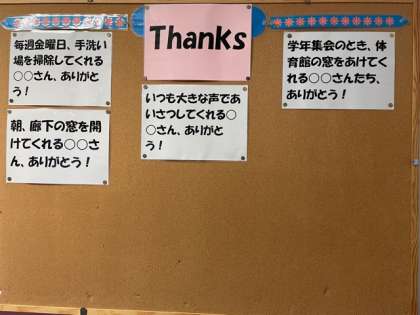 Thanks
毎週金曜日、手洗い
場を掃除してくれる
○○さん、ありがと
う！
朝、廊下の窓を開
けてくれる○○さ
ん、ありがとう！
いつも大きな声であ
いさつしてくれる○
○さん、ありがと
う！
学年集会のとき、体
育館の窓をあけてく
れる○○さんたち、
ありがとう！